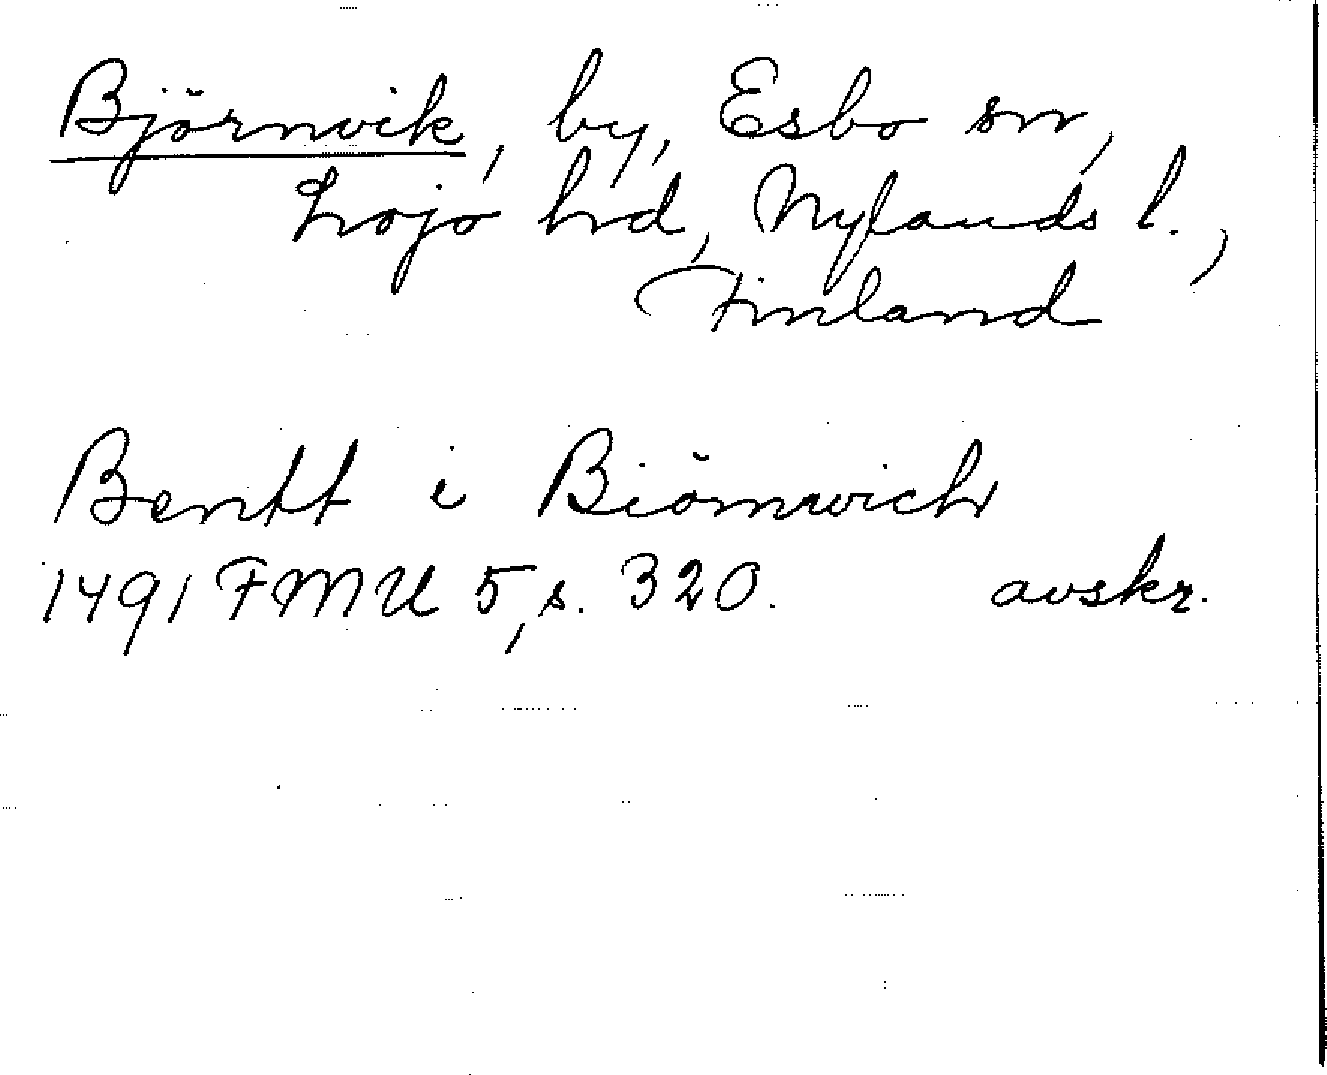 Björnvik, by, Esbo sn,
Lojo hd, Nylands l.,
Finland
Bentt i Biörnwich
1491 FMU 5, s. 320. avskr.